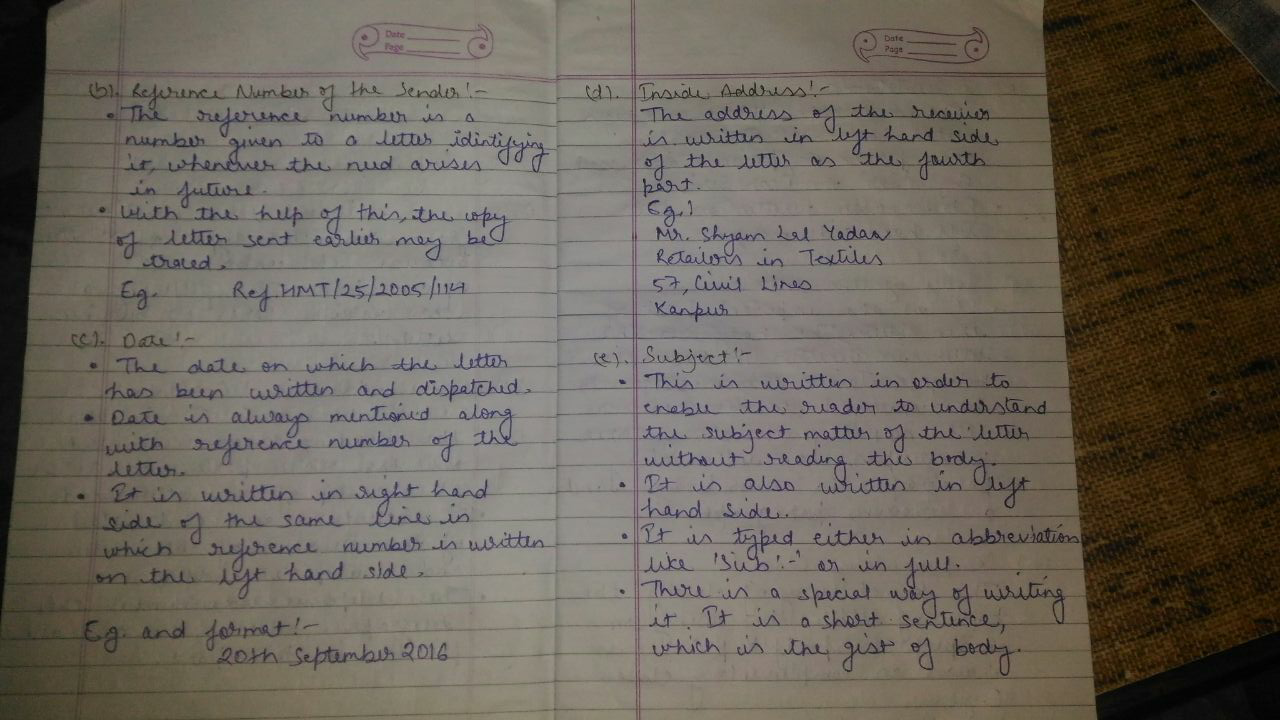 Date
Page
(b). Reference Number of the Sender:-
• The reference number is a
number given to a letter idintifying
it, whenever the need arises
in future.
• With the help of this, the copy
of letter sent earlier may be
traced.
Eg. Ref HMT/25/2005/114
(c). Date:-
• The date on which the letter
has been written and dispatched.
• Date is always mentioned along
with reference number of the
letter.
• It is written in right hand
side of the same line in
which reference number is written
on the left hand side.
Eg. and format:-
20th September 2016
Date
Page
(d). Inside Address:-
The address of the receiver
is written in left hand side
of the letter as the fourth
part.
Eg.
Mr. Shyam Lal Yadav
Retailors in Textiles
57, Civil Lines
Kanpur
(e). Subject:-
• This is written in order to
enable the reader to understand
the subject matter of the letter
without reading the body.
• It is also written in left
hand side.
• It is typed either in abbreviation
like 'Sub:-' or in full.
• There is a special way of writing
it. It is a short sentence,
which is the gist of body.